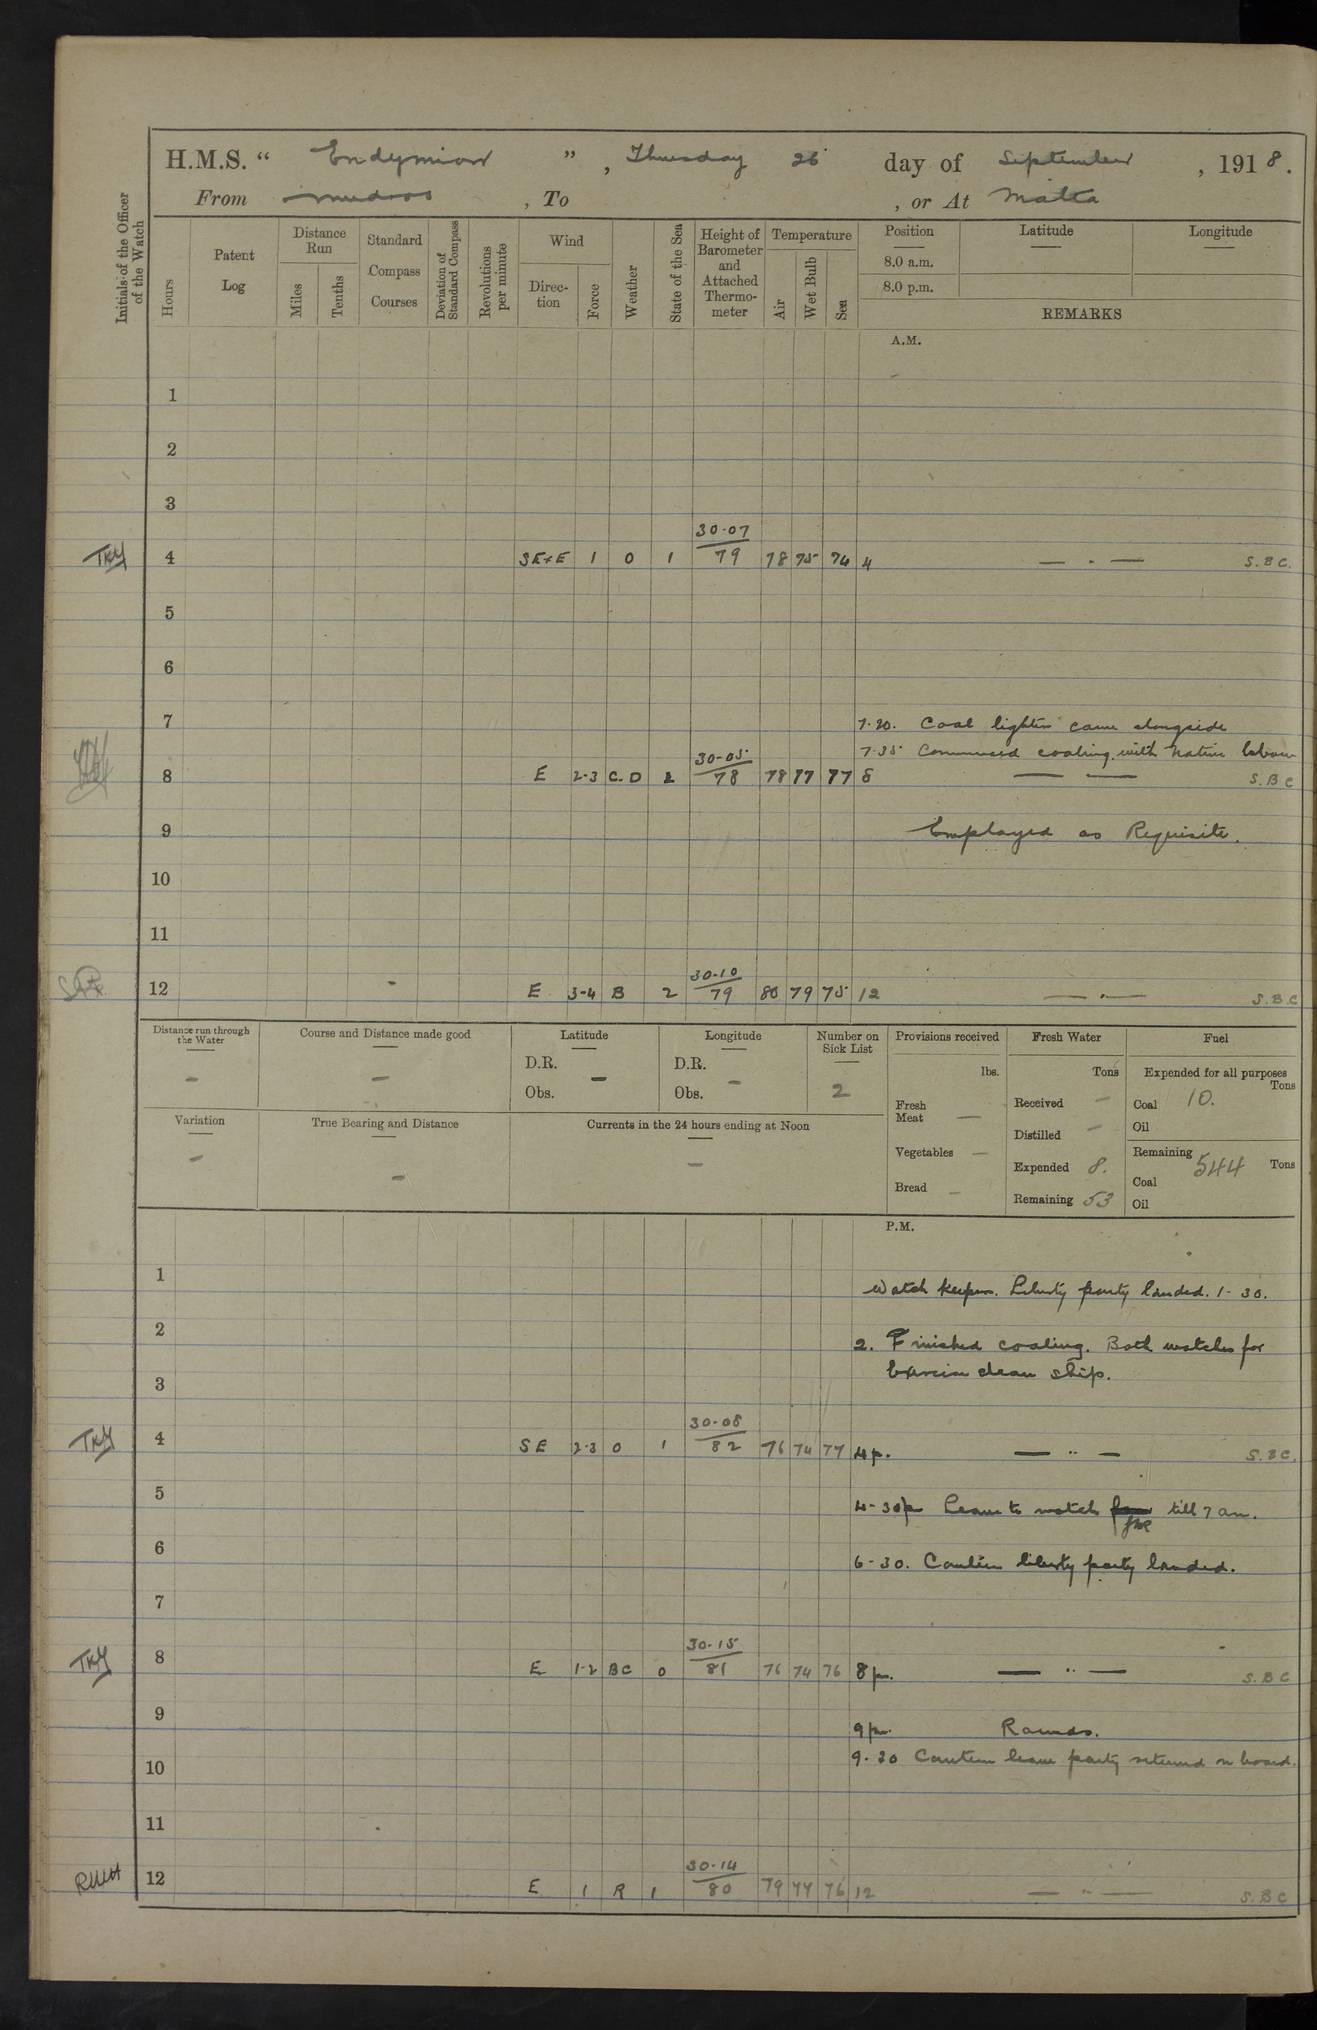 H.M.S. “ Endymion ” , Thursday 26 day of September , 1918.
From Mudros , To , or At Malta
Initials of the Officer of the Watch
Hours
Patent Log
Distance Run
Miles
Tenths
Standard Compass Courses
Deviation of Standard Compass
Revolutions per minute
Wind
Direction
Force
Weather
State of the Sea
Height of Barometer and Attached Thermometer
Temperature
Air
Wet Bulb
Sea
Position
8.0 a.m.
8.0 p.m.
Latitude
Longitude
REMARKS
A.M.
1
2
3
30·07
TKY 4 SE+E 1 O 1 79 78 75 74 4 — · — S.B.C.
5
6
7 7·20. Coal lighter came alongside
7·35 Commenced coaling with native labour
30-05
8 E 2-3 C.D 2 78 78 77 77 8 — — S.B.C
9 Employed as Requisite.
10
11
30-10
12 E 3-4 B 2 79 80 79 75 12 — · — S.B.C
Distance run through the Water
—
Course and Distance made good
—
Latitude
D.R.
Obs. —
Longitude
D.R.
Obs. —
Number on Sick List
2
Variation
—
True Bearing and Distance
—
Currents in the 24 hours ending at Noon
—
Provisions received
lbs.
Fresh Meat —
Vegetables —
Bread —
Fresh Water
Tons
Received —
Distilled —
Expended 8.
Remaining 53
Fuel
Expended for all purposes
Tons
Coal 10.
Oil
Remaining
544 Tons
Coal
Oil
P.M.
1
Watch keepers. Liberty party landed. 1-30.
2
2. Finished coaling. Both watches for
Exercise clean ship.
3
30-08
TKY 4 SE 2-3 O 1 82 76 74 77 4p. — " — S.B.C.
5
4-30p Leave to watch till 7 am.
6
6-30. Canteen liberty party landed.
7
30-15
TKY 8 E 1-2 BC 0 81 76 74 76 8pm. — " — S.B.C
9
9pm. Rounds.
9-30 Canteen leave party returned on board.
10
11
30-14
RWH 12 E 1 R 1 80 79 77 76 12 — " — S.B.C